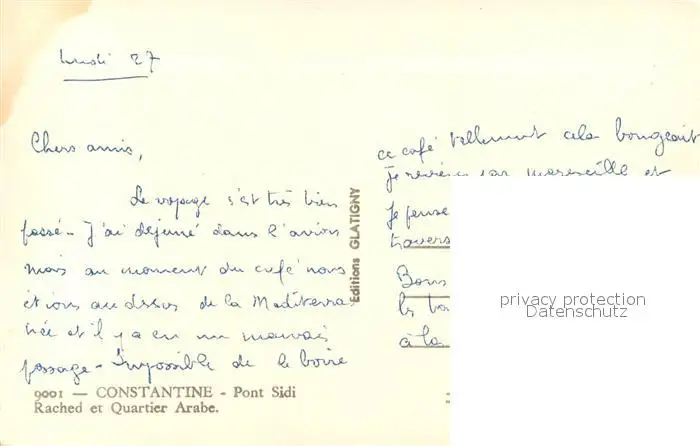 lundi 27
Chers amis,
Le voyage s'est très bien
passé - J'ai déjeuné dans l'avion
mais au moment du café nous
étions au dessus de la Mediterra
née et il y a eu un mauvais
passage - Impossible de le boire
ce café tellement cela bougeait
je reviens par marseille et
Je pense
travers
Bons
les
à la
Editions GLATIGNY
9001 — CONSTANTINE - Pont Sidi
Rached et Quartier Arabe.
privacy protection
Datenschutz